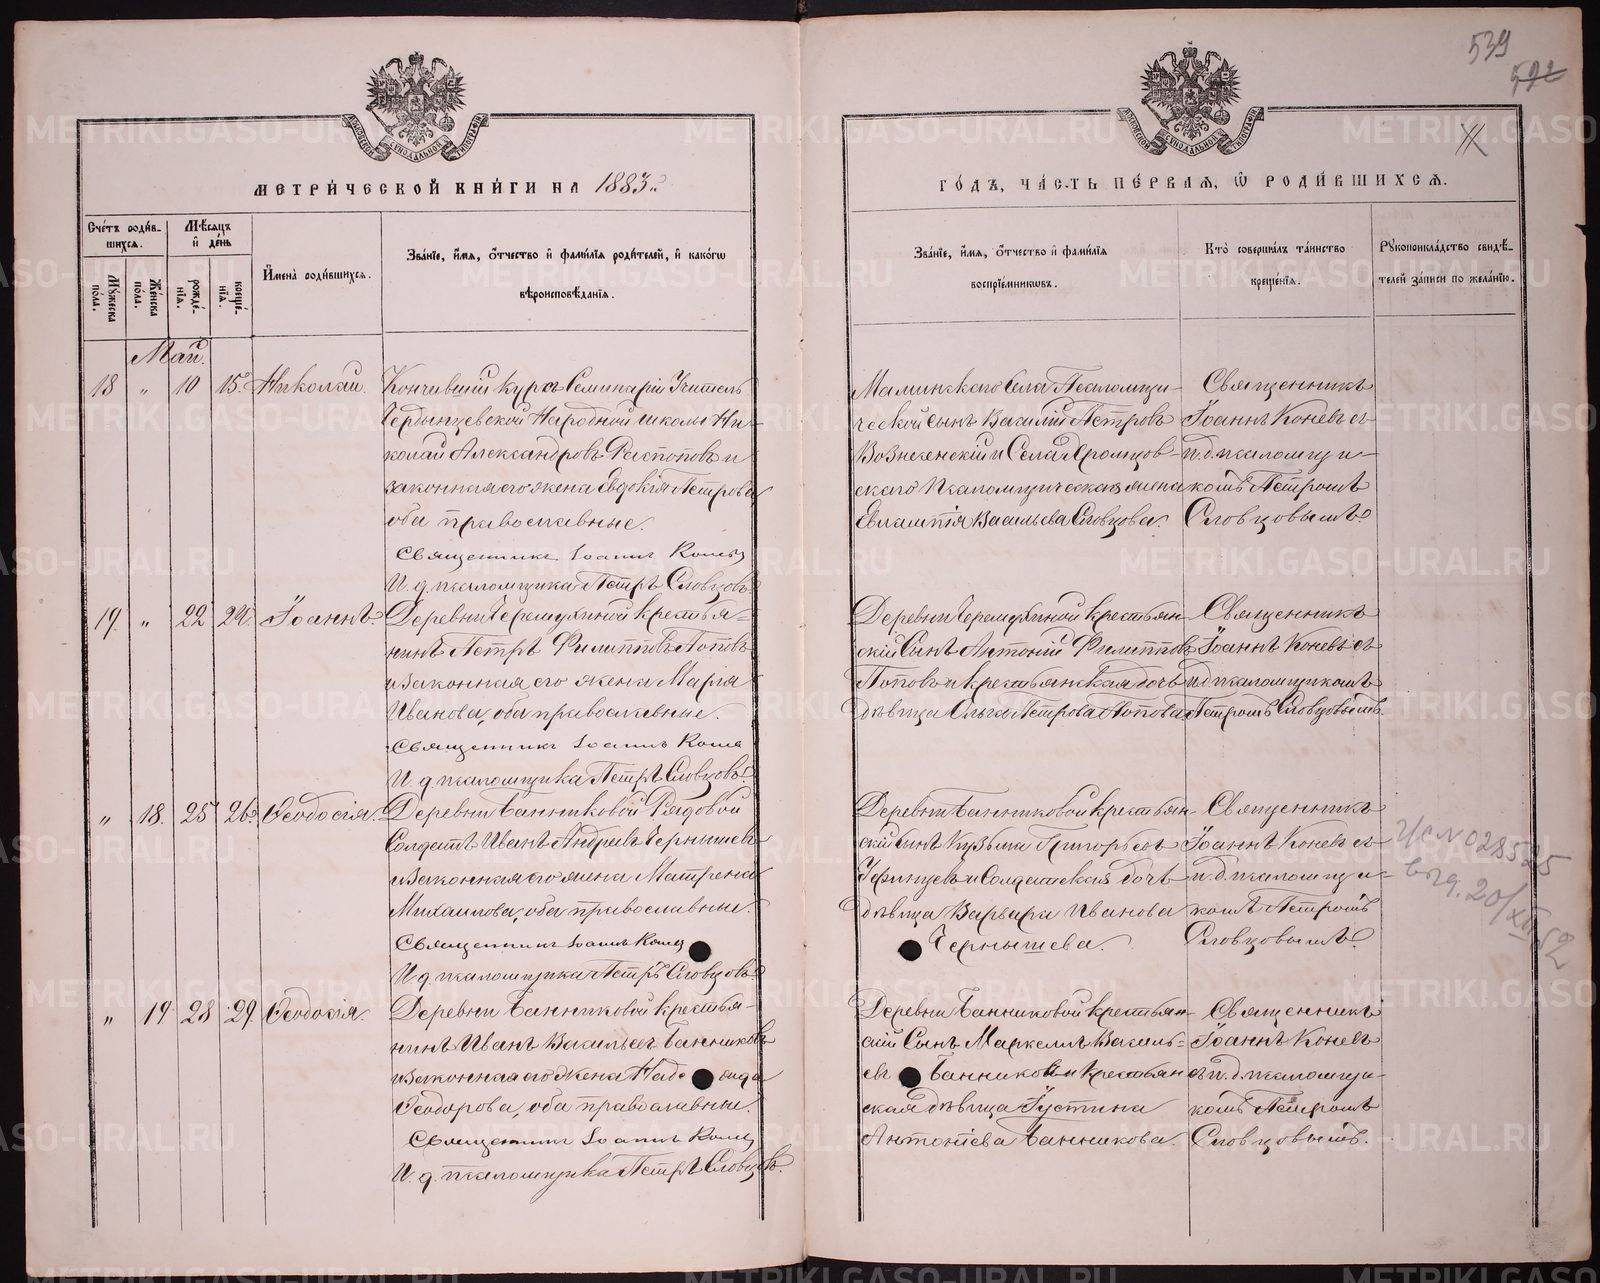 539
592
МЕТРИ́ЧЕСКОЙ КНИ́ГИ НА 1883.
ГО́ДЪ, ЧА́СТЬ ПЕ́РВАЯ, Ѡ РОДИ́ВШИХСЯ.
Сче́тъ роди́в-
шихся.
Мꙋ́жеска по́ла.
Же́нска по́ла.
Мѣ́сяцъ и де́нь
рожде́-
нїя.
креще́-
нїя.
И҆мена̀ роди́вшихся.
Зва́нїе, и҆́мя, ѻ҆́тчество и҆ фами́лїя роди́телей, и҆ како́гѡ
вѣроисповѣ́данїя.
Зва́нїе, и҆́мя, ѻ҆́тчество и҆ фами́лїя
воспрїе́мниковъ.
Кто̀ соверша́лъ та́инство
креще́нїя.
Рꙋкоприкла́дство свидѣ́-
телей за́писи по жела́нїю.
Май.
18 " 10 15. Николай.
Кончившій курсъ Семинаріи Учитель
Народной школы Ни-
колай Александровъ Распоповъ и
законная его жена Евдокія Петрова
оба православные.
Священникъ Іоаннъ Коневъ
И. д. псаломщика Петръ Словцовъ.
Маминскаго Села Псаломщи-
ческой сынъ Василій Петровъ
Вознесенскій и Села Яромцов-
скаго Псаломщическая жена
Евлампія Васильева Словцова.
Священникъ
Іоаннъ Коневъ съ
и. д. псаломщи-
комъ Петромъ
Словцовымъ.
19. " 22 24. Іоаннъ.
Деревни Черемухиной крестья-
нинъ Петръ Филипповъ Поповъ
и законная его жена Марія
Иванова, оба православные.
Священникъ Іоаннъ Коневъ
И. д. псаломщика Петръ Словцовъ.
Деревни Черемухиной крестьян-
скій Сынъ Антоній Филипповъ
Поповъ и крестьянская дочь
дѣвица Ольга Петрова Попова
Священникъ
Іоаннъ Коневъ съ
и. д. псаломщикомъ
Петромъ Словцовымъ.
" 18. 25 26. Ѳеодосія.
Деревни Банниковой Рядовой
Солдатъ Иванъ Андреевъ Чернышевъ
и законная его жена Матрена
Михайлова, оба православные.
Священникъ Іоаннъ Коневъ
И. д. псаломщика Петръ Словцовъ.
Деревни Банниковой крестьян-
скій сынъ Кузьма Григорьевъ
Уфинцевъ и Солдатская дочь
дѣвица Варвара Иванова
Чернышева.
Священникъ
Іоаннъ Коневъ съ
и. д. псаломщи-
комъ Петромъ
Словцовымъ.
ЧС № 028525
выд. 20/XII 52
" 19 28 29. Ѳеодосія.
Деревни Банниковой крестья-
нинъ Иванъ Васильевъ Банниковъ
и законная его жена
Ѳеодорова, оба православные.
Священникъ Іоаннъ Коневъ
И. д. псаломщика Петръ Словцовъ.
Деревни Банниковой крестьян-
скій Сынъ Маркеллъ Василь-
евъ Банниковъ и крестьян-
ская дѣвица Іустина
Антоніева Банникова.
Священникъ
Іоаннъ Коневъ
съ и. д. псаломщи-
комъ Петромъ
Словцовымъ.
METRIKI.GASO-URAL.RU